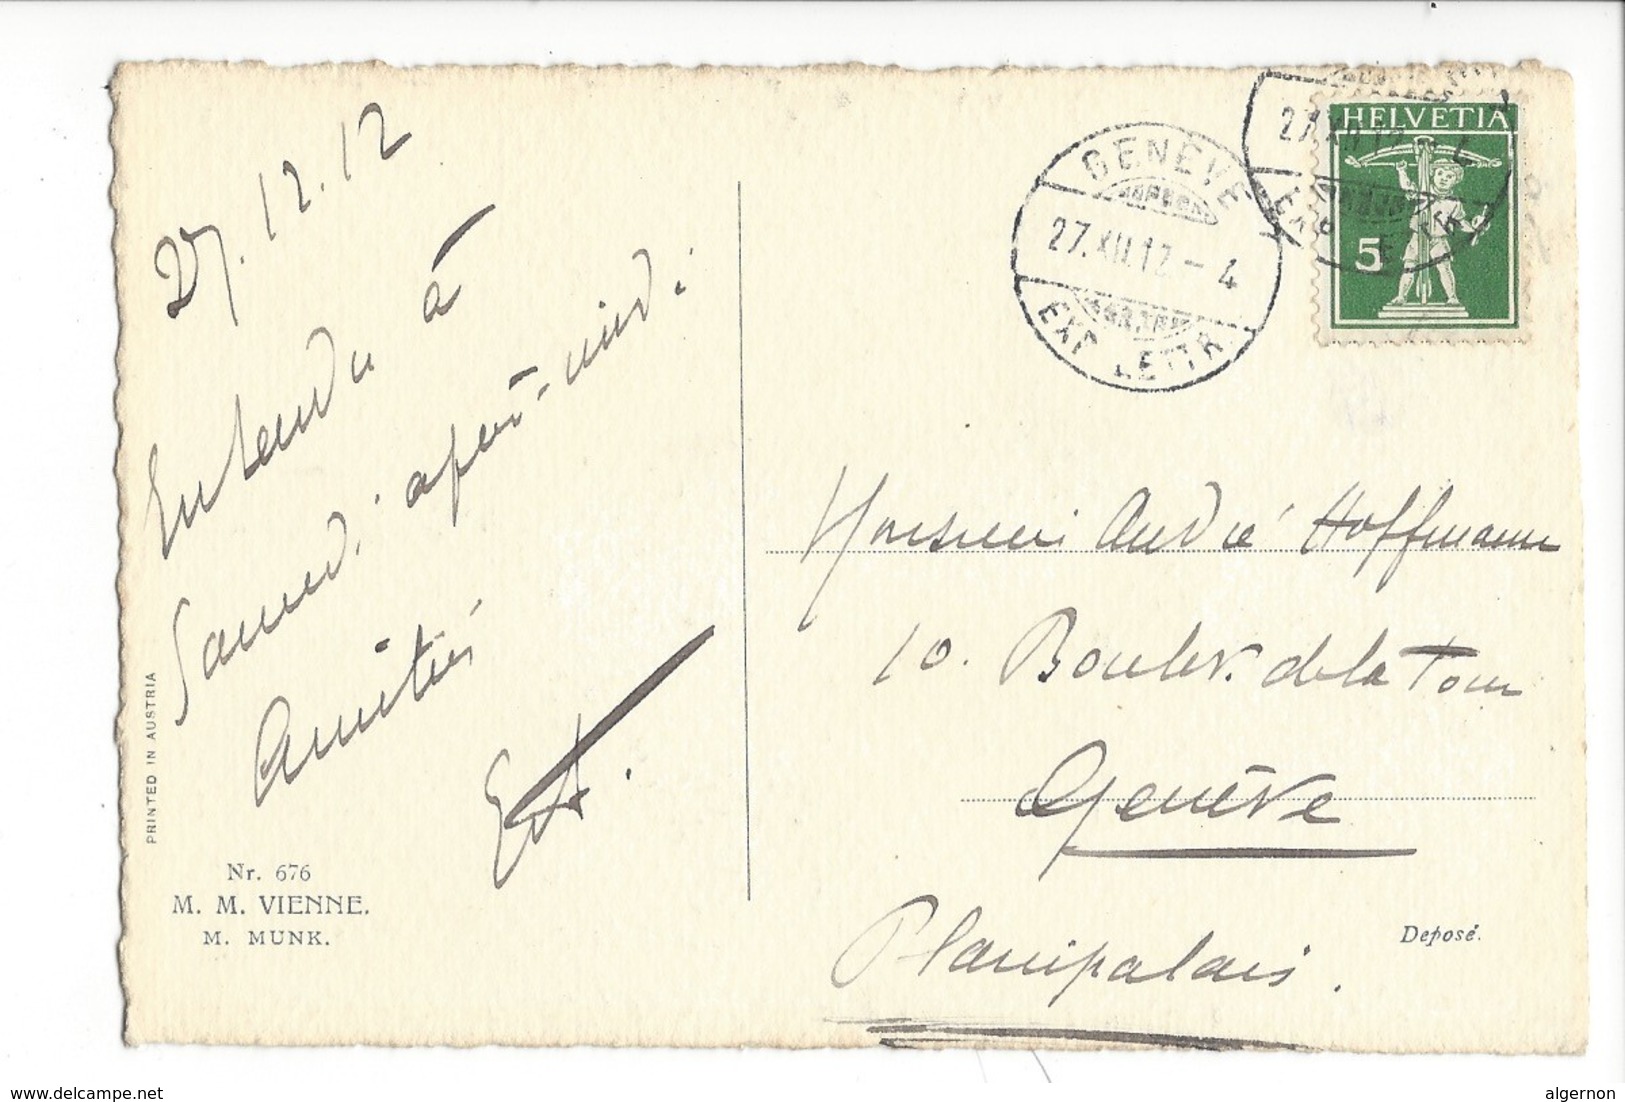 27.12.12
Entendu à
Samedi après-midi
Amitiés
PRINTED IN AUSTRIA
Nr. 676
M. M. VIENNE.
M. MUNK.
GENÈVE
27.XII.12.-4
EXP. LETTR.
27.XII.12
HELVETIA
5
Monsieur André Hoffmann
10. Boulev. de la Tour
Genève
Plainpalais.
Deposé.
www.delcampe.net
algernon